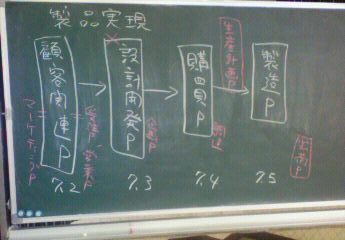 製品実現
顧客関連P
設計開発P
購買P
製造P
マーケティングP
営業P
企画P
生産計画P
調達
出荷P
7.2
7.3
7.4
7.5